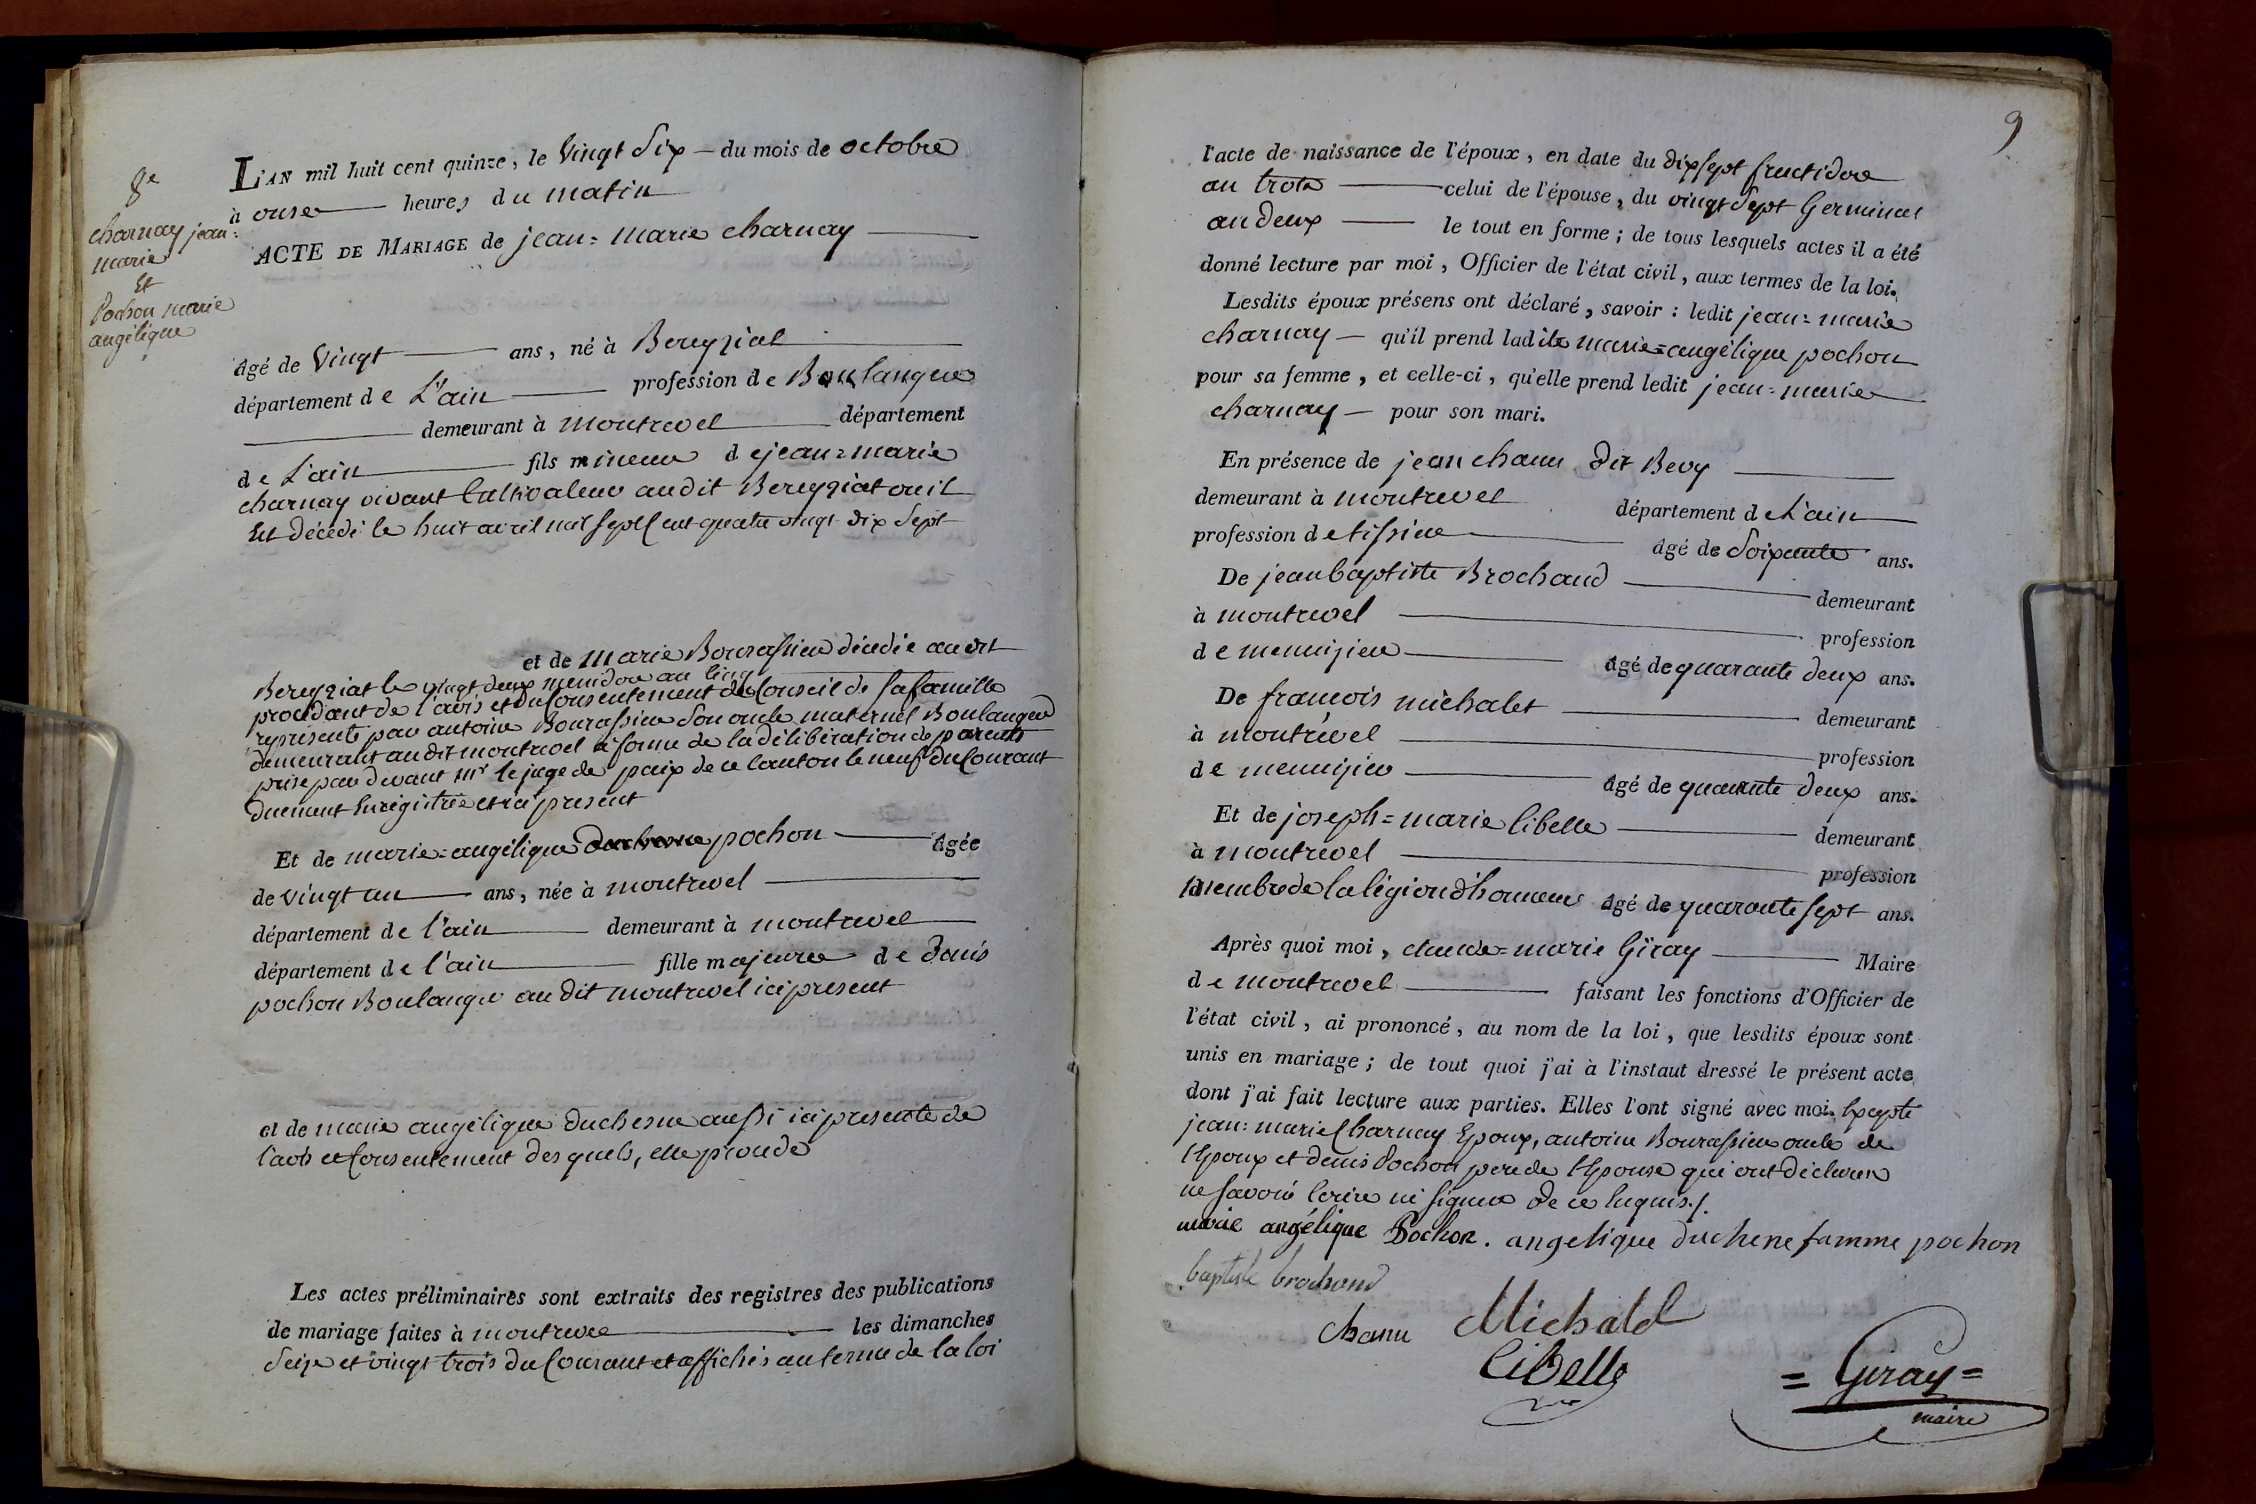 8e
charnay jean=
marie
Et
Pochon marie
angélique
L'AN mil huit cent quinze, le Vingt Six — du mois de octobre
à onse heures du matin
ACTE DE MARIAGE de jean=marie charnay
âgé de Vingt ans, né à Bereyziat
département de L'ain profession de Boulanger
demeurant à montrevel département
de L'ain fils mineur de jean=marie
charnay vivant Cultivateur audit Bereyziat ou il
Est décédé le huit avril mil sept Cent quatre vingt dix Sept
et de Marie Bourassier décédée audit
Bereyziat le vingt deux messidor an cinq
procédant de l'avis et du Consentement du Conseil de sa famille
représenté par antoine Bourassier Son oncle maternel Boulanger
demeurant audit montrevel à forme de la délibération de parents
prise par devant Mr le juge de paix de ce Canton le neuf du Courant
duement Enregistrée et ici présent
Et de marie=angélique pochon âgée
de vingt un ans, née à montrevel
département de l'ain demeurant à montrevel
département de l'ain fille majeure de Denis
pochon Boulanger au dit montrevel ici present
et de marie angélique duchesne aussi ici presente de
l'avis et Consentement des quels, elle procede
Les actes préliminaires sont extraits des registres des publications
de mariage faites à montrevel les dimanches
Seize et vingt trois du Courant et affichés au terme de la loi
9
l'acte de naissance de l'époux, en date du dix sept fructidor
an trois celui de l'épouse, du vingt Sept Germinal
an deux le tout en forme; de tous lesquels actes il a été
donné lecture par moi, Officier de l'état civil, aux termes de la loi.
Lesdits époux présens ont déclaré, savoir: ledit jean=marie
charnay — qu'il prend ladite marie=angélique pochon
pour sa femme, et celle-ci, qu'elle prend ledit jean=marie
charnay — pour son mari.
En présence de jean chanu dit Bevy
demeurant à montrevel département de L'ain
profession de tissier âgé de Soixante ans.
De jean baptiste Brochand demeurant
à montrevel profession
de menuisier âgé de quarante deux ans.
De francois michalet demeurant
à montrevel profession
de menuisier âgé de quarante deux ans.
Et de joseph=marie libelle demeurant
à montrevel profession
membre de la légion d'honneur âgé de quarante sept ans.
Après quoi moi, claude=marie Giray Maire
de montrevel faisant les fonctions d'Officier de
l'état civil, ai prononcé, au nom de la loi, que lesdits époux sont
unis en mariage; de tout quoi j'ai à l'instaut dressé le présent acte
dont j'ai fait lecture aux parties. Elles l'ont signé avec moi. Excepté
jean=marie Charnay Epoux, antoine Bourassier oncle de
l'Epoux et denis Pochon pere de l'Epouse qui ont déclarer
ne savoir Ecrire ni signer de ce Enquis./.
marie angélique Pochon. angelique duchene famme pochon
baptiste brochand
chanu Michalet
Libelle
= Giray =
maire